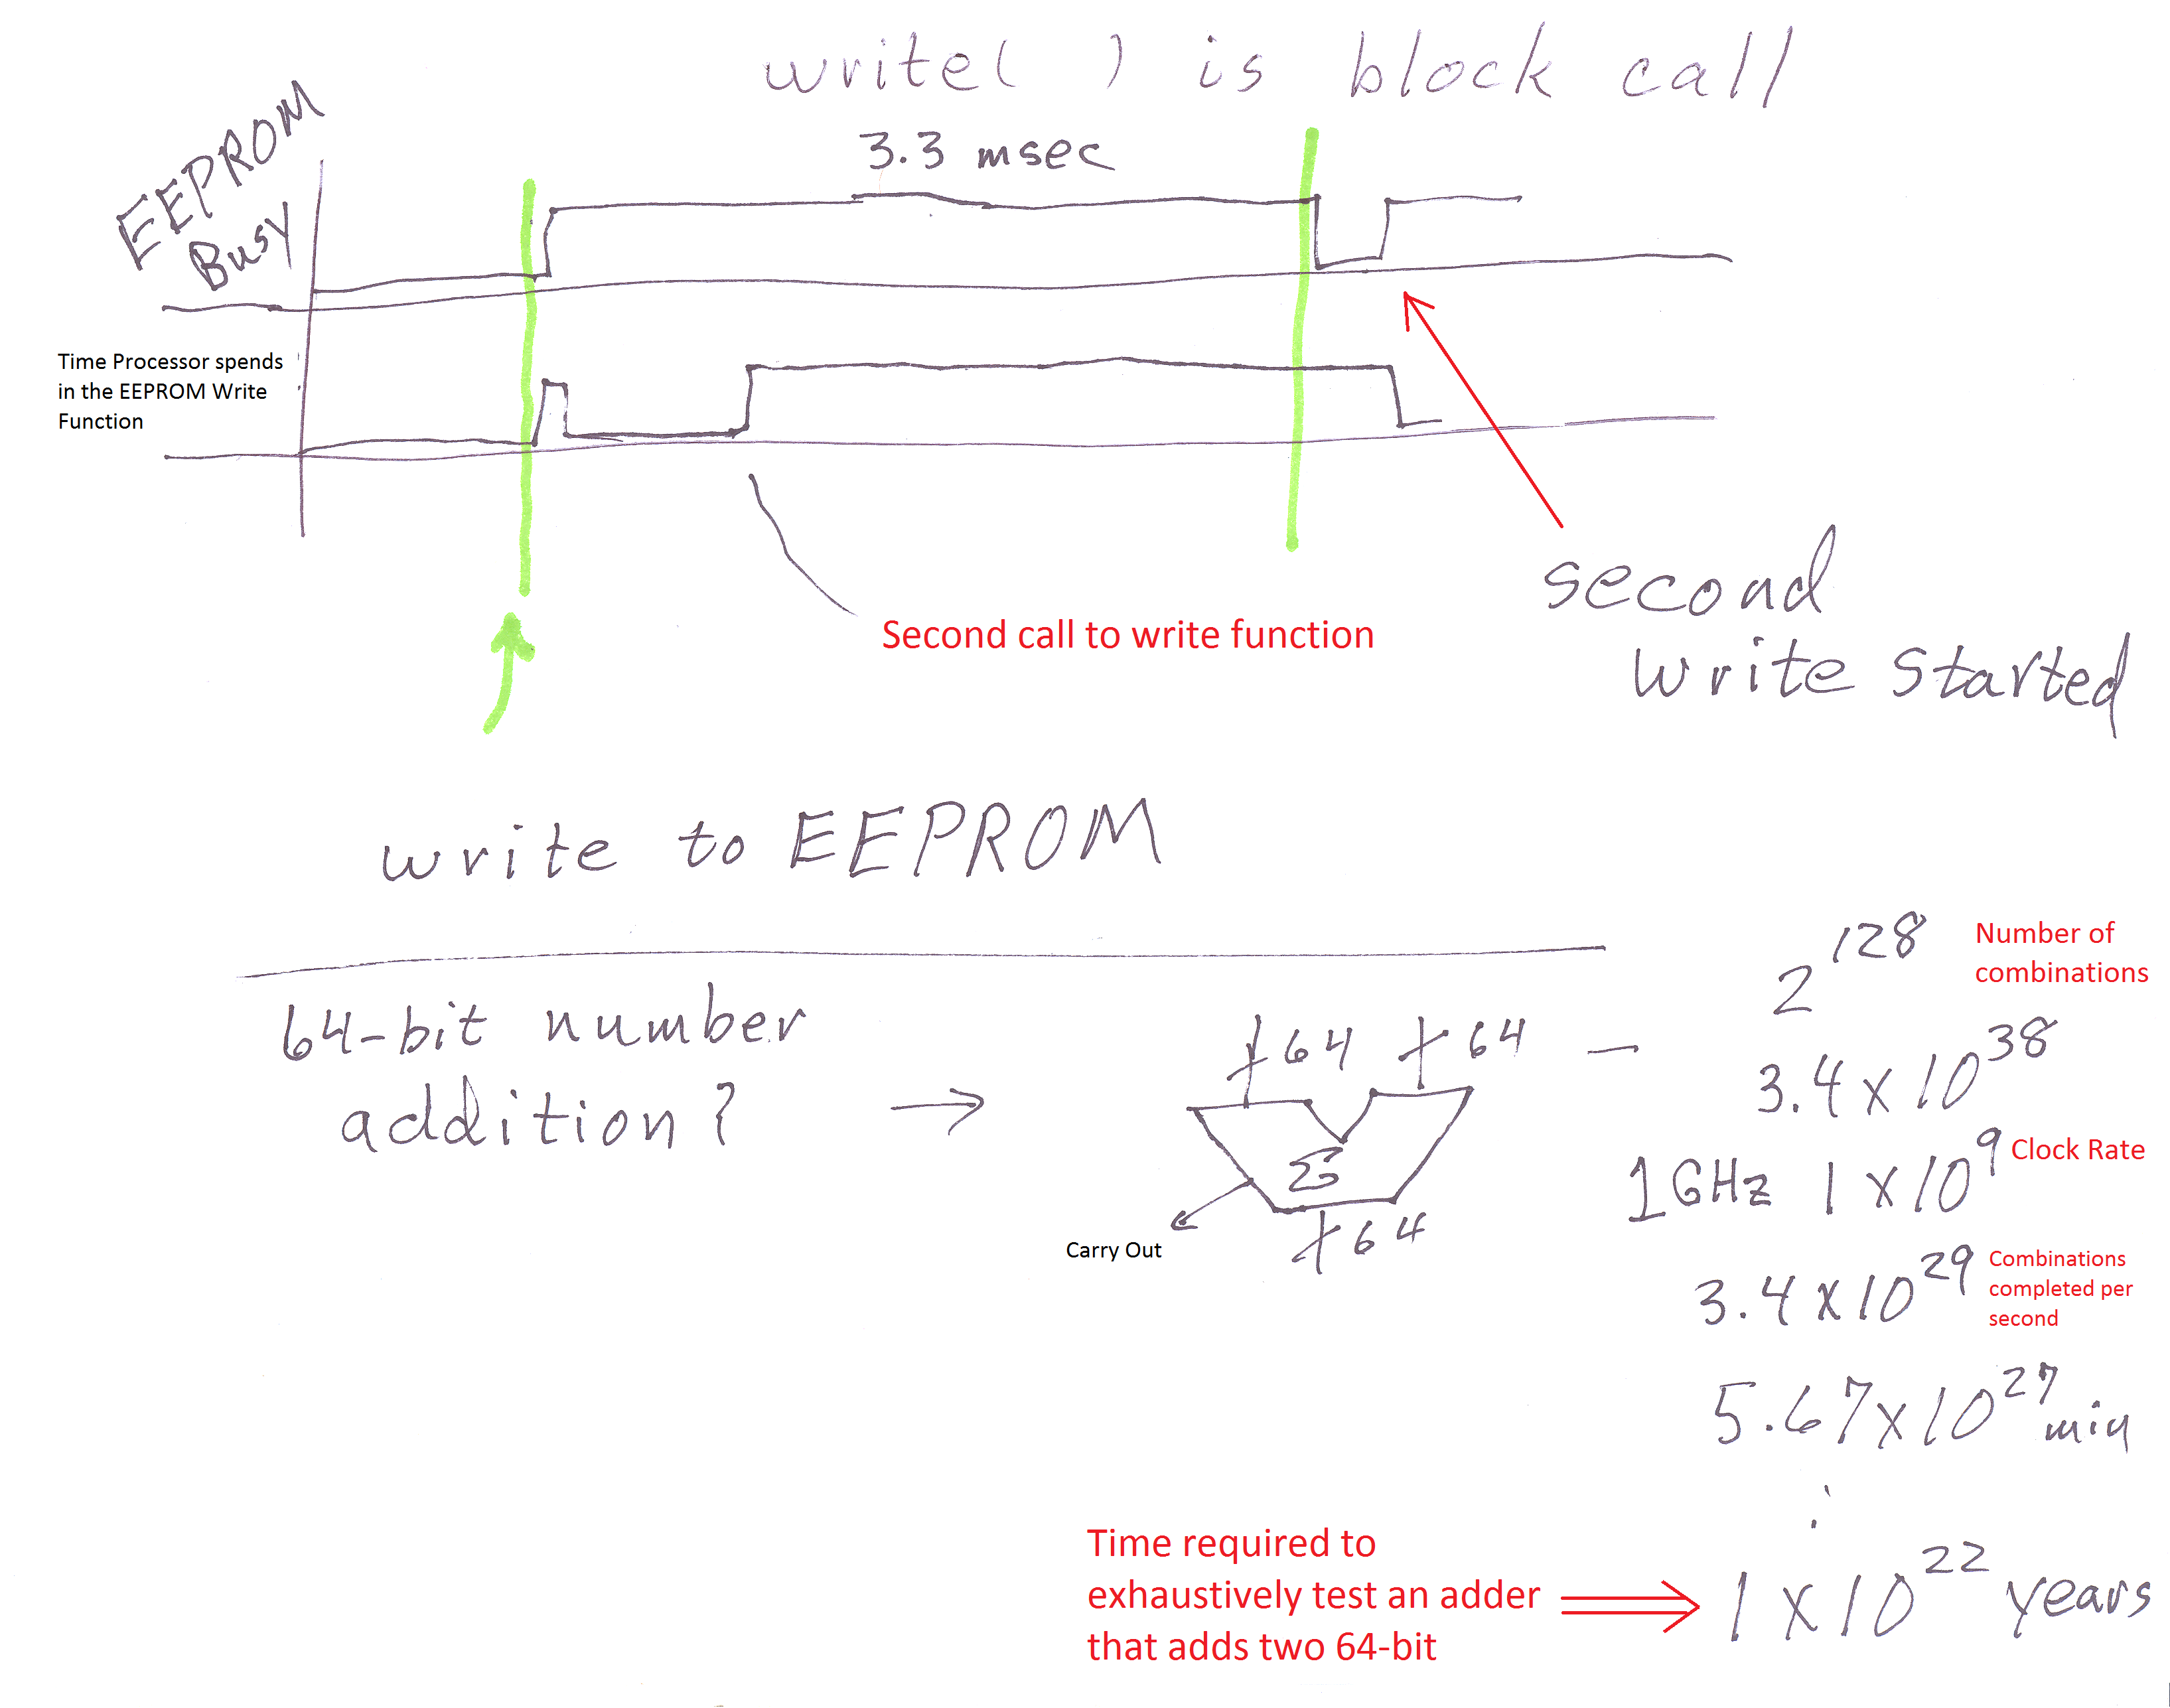 write( ) is block call
3.3 msec
EEPROM
Busy
Time Processor spends
in the EEPROM Write
Function
Second call to write function
second
write started
write to EEPROM
64-bit number
addition?
→
64
64
—
Σ
64
Carry Out
2^128
Number of
combinations
3.4 x 10^38
1GHz 1 x 10^9
Clock Rate
3.4 x 10^29
Combinations
completed per
second
5.67 x 10^27 min
Time required to
exhaustively test an adder
that adds two 64-bit
1 x 10^22 years